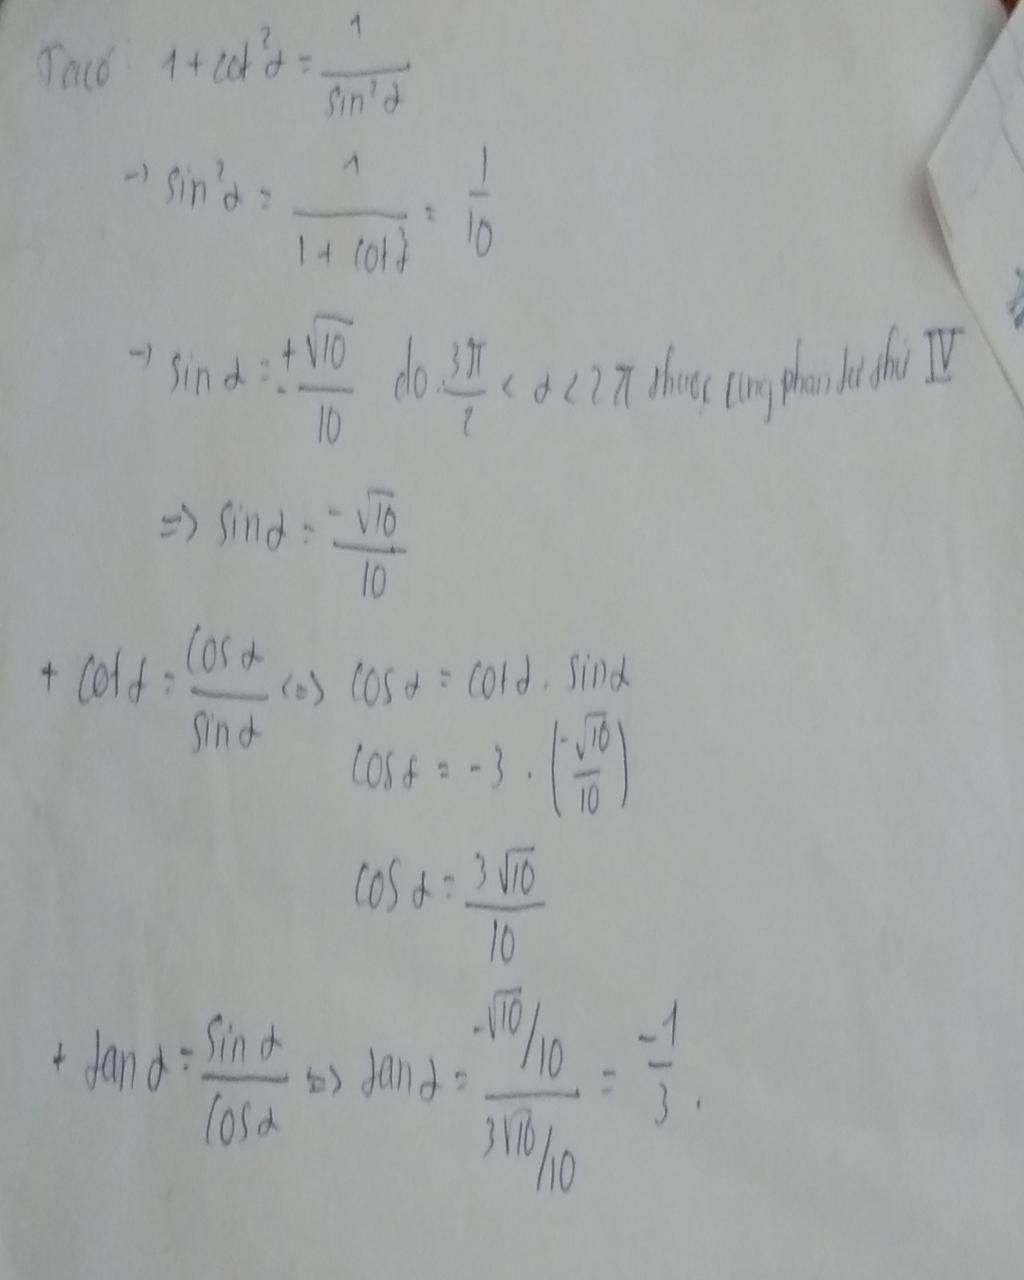 Ta có: 1 + cot²α = 1/sin²α
→ sin²α = 1/(1 + cot²) = 1/10
→ sin α = ±√10/10 do 3π/2 < α < 2π thuộc cung phần tư thứ IV
=> sin α = -√10/10
+ cot α = cos α/sin α <=> cos α = cot α . sin α
cos α = -3 . (-√10/10)
cos α = 3√10/10
+ tan α = sin α/cos α => tan α = (-√10/10)/(3√10/10) = -1/3 .